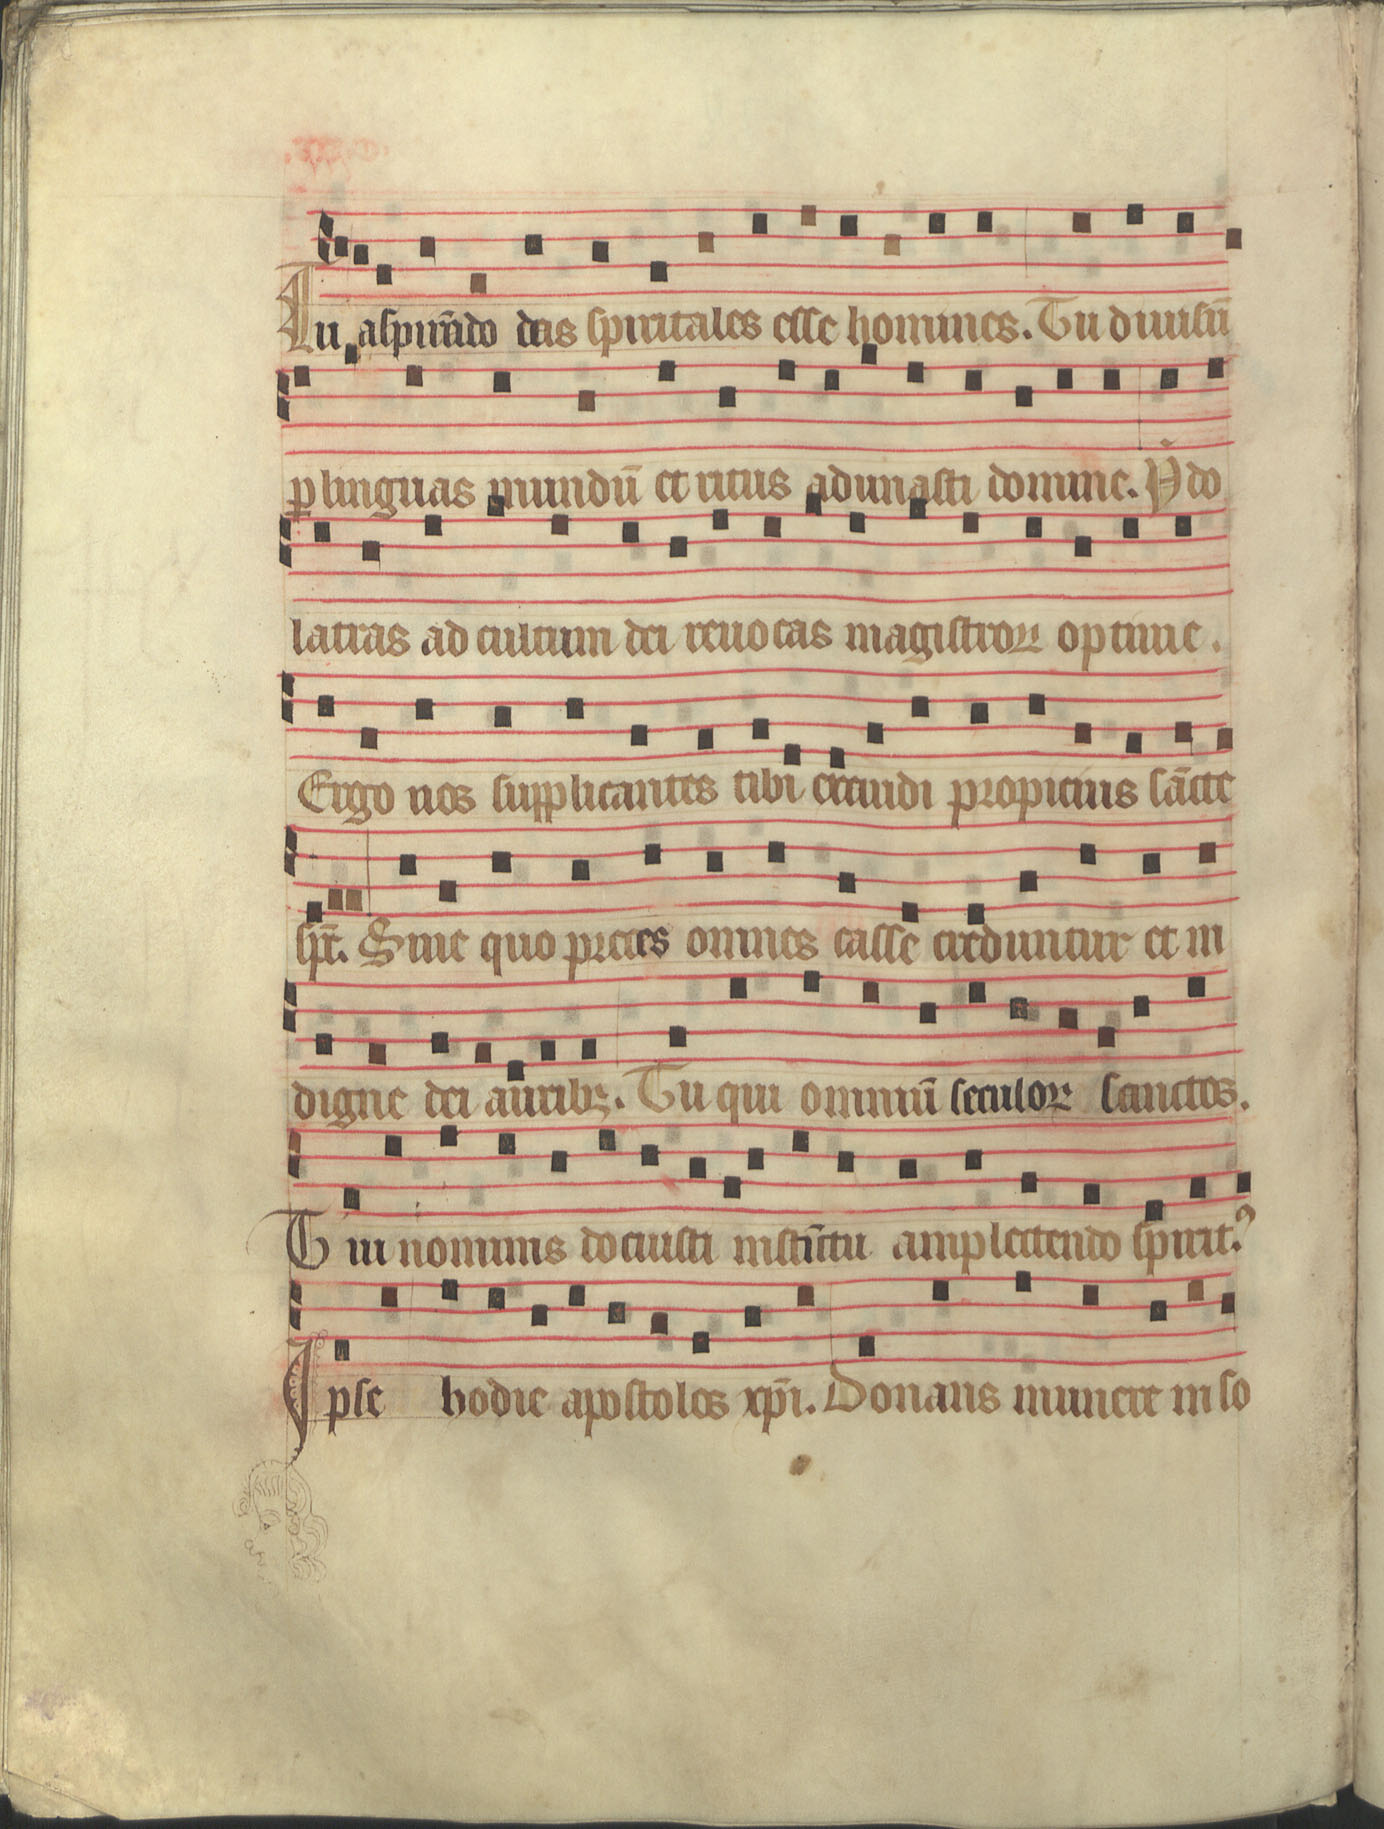 Tu aspirãdo das spiritales esse homines. Tu diuisũ
ꝑ linguas mundũ et ritus adunasti domine. Ydo
latras ad cultum dei reuocas magistroꝝ optime.
Ergo nos supplicantes tibi exaudi propicius sãcte
sp̃r. Sine quo preces omnes casse creduntur et in
digne dei auribꝫ. Tu qui omniũ seculoꝝ sanctos.
Tui nominis docuisti instĩctu amplectendo spiritꝰ
Ipse hodie apostolos xp̃i. Donans munere inso